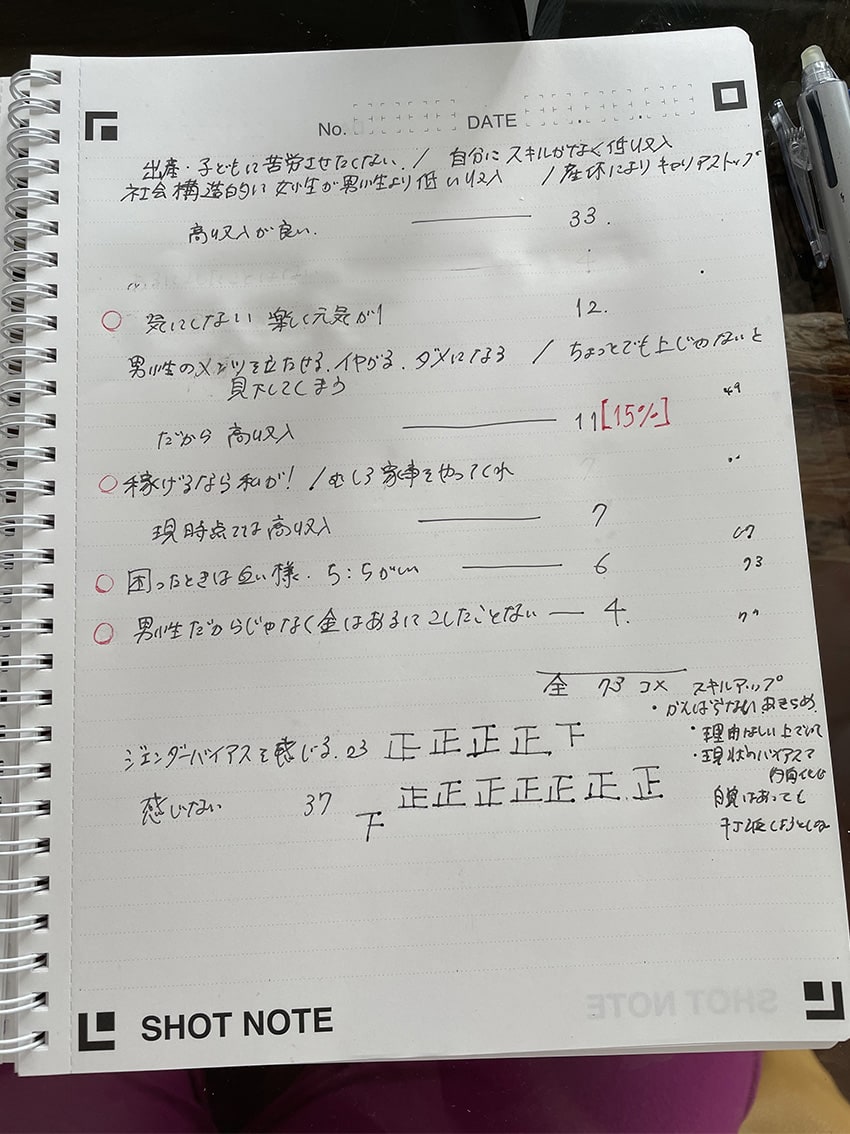 No. DATE
出産・子どもに苦労させたくない. / 自分にスキルがなく低収入
社会構造的に女性が男性より低い収入 / 産休によりキャリアストップ
高収入が良い. 33.
気にしない 楽しく元気が! 12.
男性のメンツを立たせる. イヤがる. ダメになる / ちょっとでも上じゃないと
見下してしまう
49
だから 高収入 11 [15%]
稼げるなら私が! / むしろ家事をやってくれ
現時点では高収入 7
困ったときはお互い様. 5:5がいい 6 73
男性だからじゃなく金はあるにこしたことない 4.
全 73 コメ スキルアップ
・がんばらない あきらめ.
ジェンダーバイアスを感じる. 23 正 正 正 正 下
・理由はいい上でいて
・現状のバイアスで
内面化し
感じない 37 正 正 正 正 正 正 正
下
自覚はあっても
打破しようとしな
SHOT NOTE